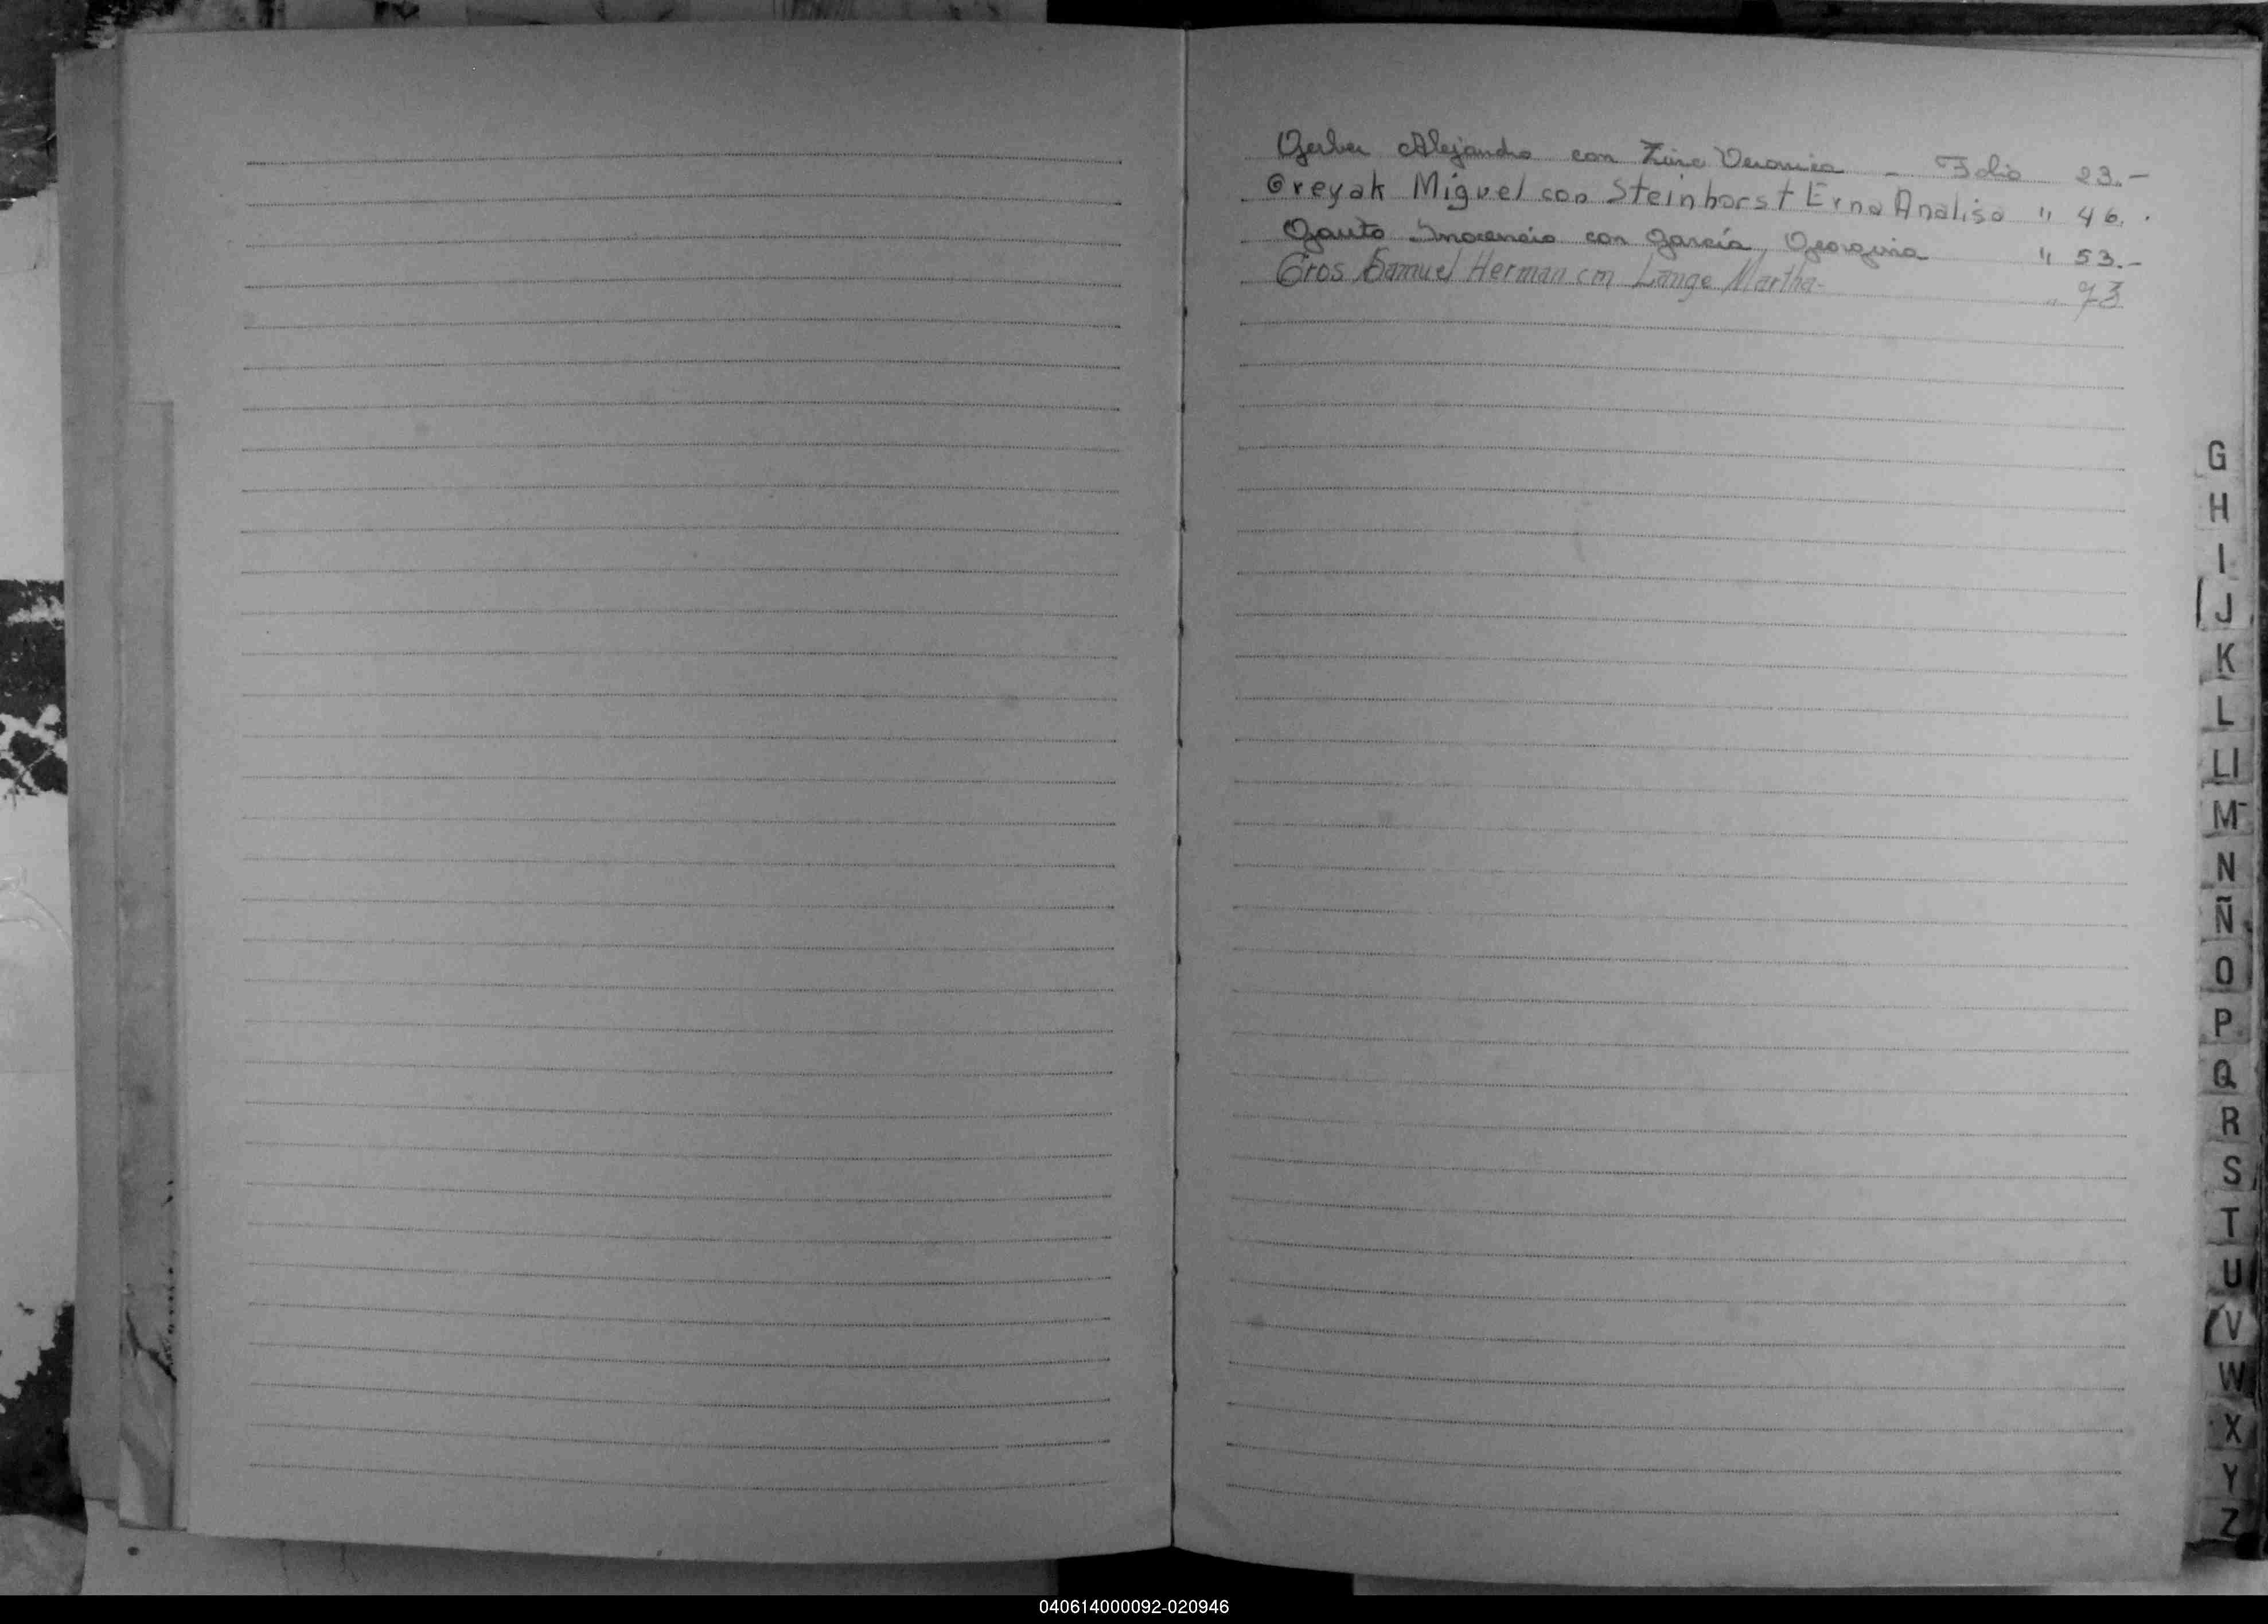 Gerber Alejandro con Zinc Veronica - Folio 23.-
Greyak Miguel con Steinhorst Erna Analisa " 46.
Gauto Inocencio con García Georgina " 53.-
Gros Samuel Herman con Lange Martha- " 73
G
H
I
J
K
L
Ll
M
N
Ñ
O
P
Q
R
S
T
U
V
W
X
Y
Z
040614000092-020946